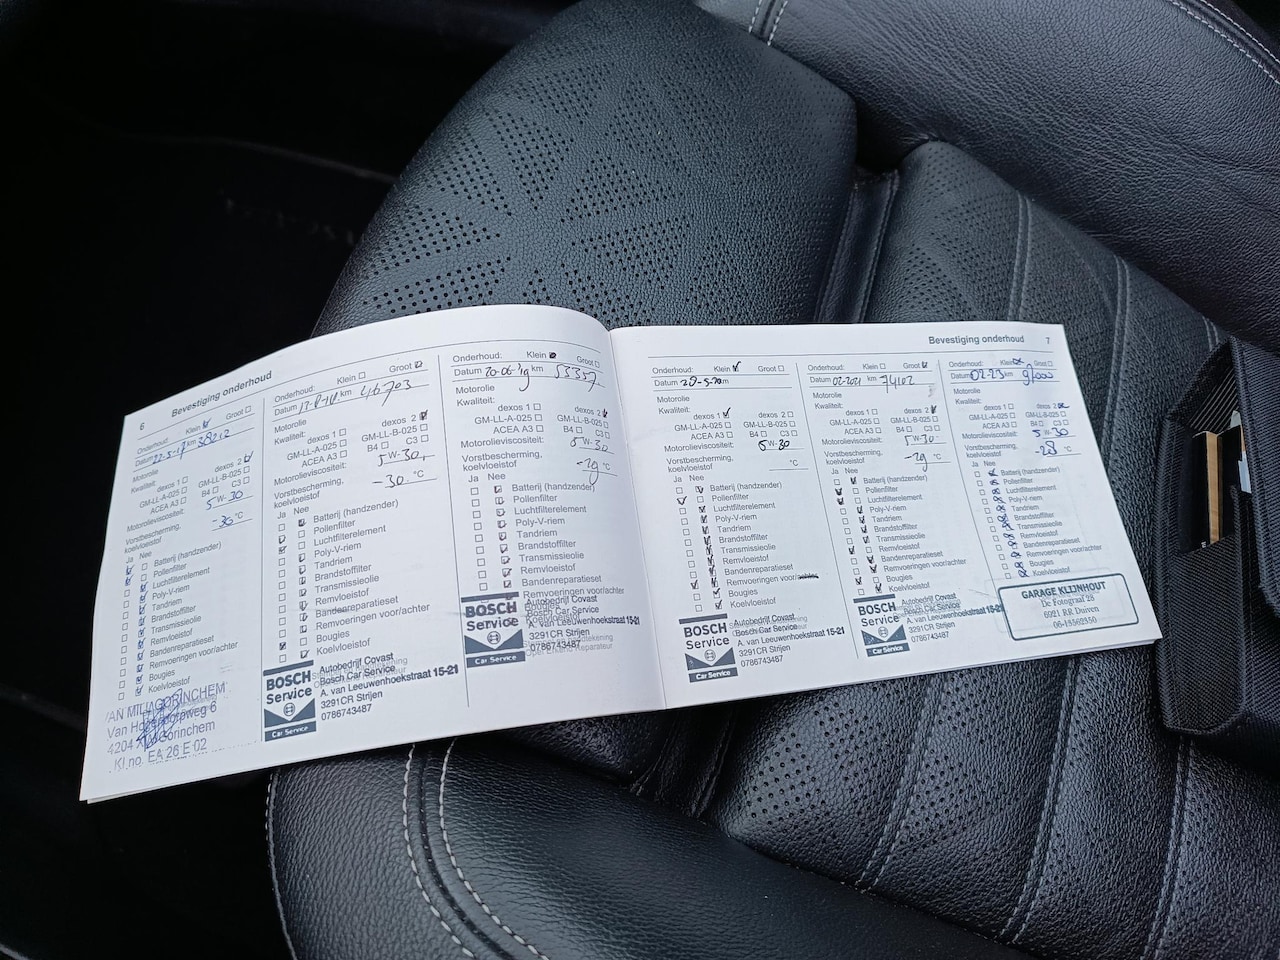 6
Bevestiging onderhoud
Onderhoud: Klein Groot
Datum 22-5-17 km 38212
Motorolie
Kwaliteit:
dexos 1 dexos 2
GM-LL-A-025 GM-LL-B-025
ACEA A3 B4 C3
Motorolieviscositeit: 5W-30
Vorstbescherming,
koelvloeistof -30 °C
Ja Nee
Batterij (handzender)
Pollenfilter
Luchtfilterelement
Poly-V-riem
Tandriem
Brandstoffilter
Transmissieolie
Remvloeistof
Bandenreparatieset
Remvoeringen voor/achter
Bougies
Koelvloeistof
Gorinchem
KI.no. EA 26 E 02
Onderhoud: Klein Groot
Datum km 46703
Motorolie
Kwaliteit:
dexos 1 dexos 2
GM-LL-A-025 GM-LL-B-025
ACEA A3 B4 C3
Motorolieviscositeit: 5W-30
Vorstbescherming,
koelvloeistof -30 °C
Ja Nee
Batterij (handzender)
Pollenfilter
Luchtfilterelement
Poly-V-riem
Tandriem
Brandstoffilter
Transmissieolie
Remvloeistof
Bandenreparatieset
Remvoeringen voor/achter
Bougies
Koelvloeistof
BOSCH
Service
Car Service
Autobedrijf Covast
Bosch Car Service
A. van Leeuwenhoekstraat 15-21
3291CR Strijen
0786743487
Onderhoud: Klein Groot
Datum 20-06-'19 km 53357
Motorolie
Kwaliteit:
dexos 1 dexos 2
GM-LL-A-025 GM-LL-B-025
ACEA A3 B4 C3
Motorolieviscositeit: 5W-30
Vorstbescherming,
koelvloeistof -29 °C
Ja Nee
Batterij (handzender)
Pollenfilter
Luchtfilterelement
Poly-V-riem
Tandriem
Brandstoffilter
Transmissieolie
Remvloeistof
Bandenreparatieset
Remvoeringen voor/achter
Bougies
Koelvloeistof
BOSCH
Service
Car Service
Autobedrijf Covast
Bosch Car Service
A. van Leeuwenhoekstraat 15-21
3291CR Strijen
0786743487
Bevestiging onderhoud 7
Onderhoud: Klein Groot
Datum km
Motorolie
Kwaliteit:
dexos 1 dexos 2
GM-LL-A-025 GM-LL-B-025
ACEA A3 B4 C3
Motorolieviscositeit: 5W-30
Vorstbescherming,
koelvloeistof °C
Ja Nee
Batterij (handzender)
Pollenfilter
Luchtfilterelement
Poly-V-riem
Tandriem
Brandstoffilter
Transmissieolie
Remvloeistof
Bandenreparatieset
Remvoeringen voor/achter
Bougies
Koelvloeistof
BOSCH
Service
Car Service
Autobedrijf Covast
Bosch Car Service
A. van Leeuwenhoekstraat 15-21
3291CR Strijen
0786743487
Onderhoud: Klein Groot
Datum 02-2021 km 74102
Motorolie
Kwaliteit:
dexos 1 dexos 2
GM-LL-A-025 GM-LL-B-025
ACEA A3 B4 C3
Motorolieviscositeit: 5W-30
Vorstbescherming,
koelvloeistof -29 °C
Ja Nee
Batterij (handzender)
Pollenfilter
Luchtfilterelement
Poly-V-riem
Tandriem
Brandstoffilter
Transmissieolie
Remvloeistof
Bandenreparatieset
Remvoeringen voor/achter
Bougies
Koelvloeistof
BOSCH
Service
Car Service
Autobedrijf Covast
Bosch Car Service
A. van Leeuwenhoekstraat 15-21
3291CR Strijen
0786743487
Onderhoud: Klein Groot
Datum 02-23 km
Motorolie
Kwaliteit:
dexos 1 dexos 2
GM-LL-A-025 GM-LL-B-025
ACEA A3 B4 C3
Motorolieviscositeit: 5W-30
Vorstbescherming,
koelvloeistof -28 °C
Ja Nee
Batterij (handzender)
Pollenfilter
Luchtfilterelement
Poly-V-riem
Tandriem
Brandstoffilter
Transmissieolie
Remvloeistof
Bandenreparatieset
Remvoeringen voor/achter
Bougies
Koelvloeistof
GARAGE KLIJNHOUT
De Fotograaf 28
6921 RR Duiven
06-15562350